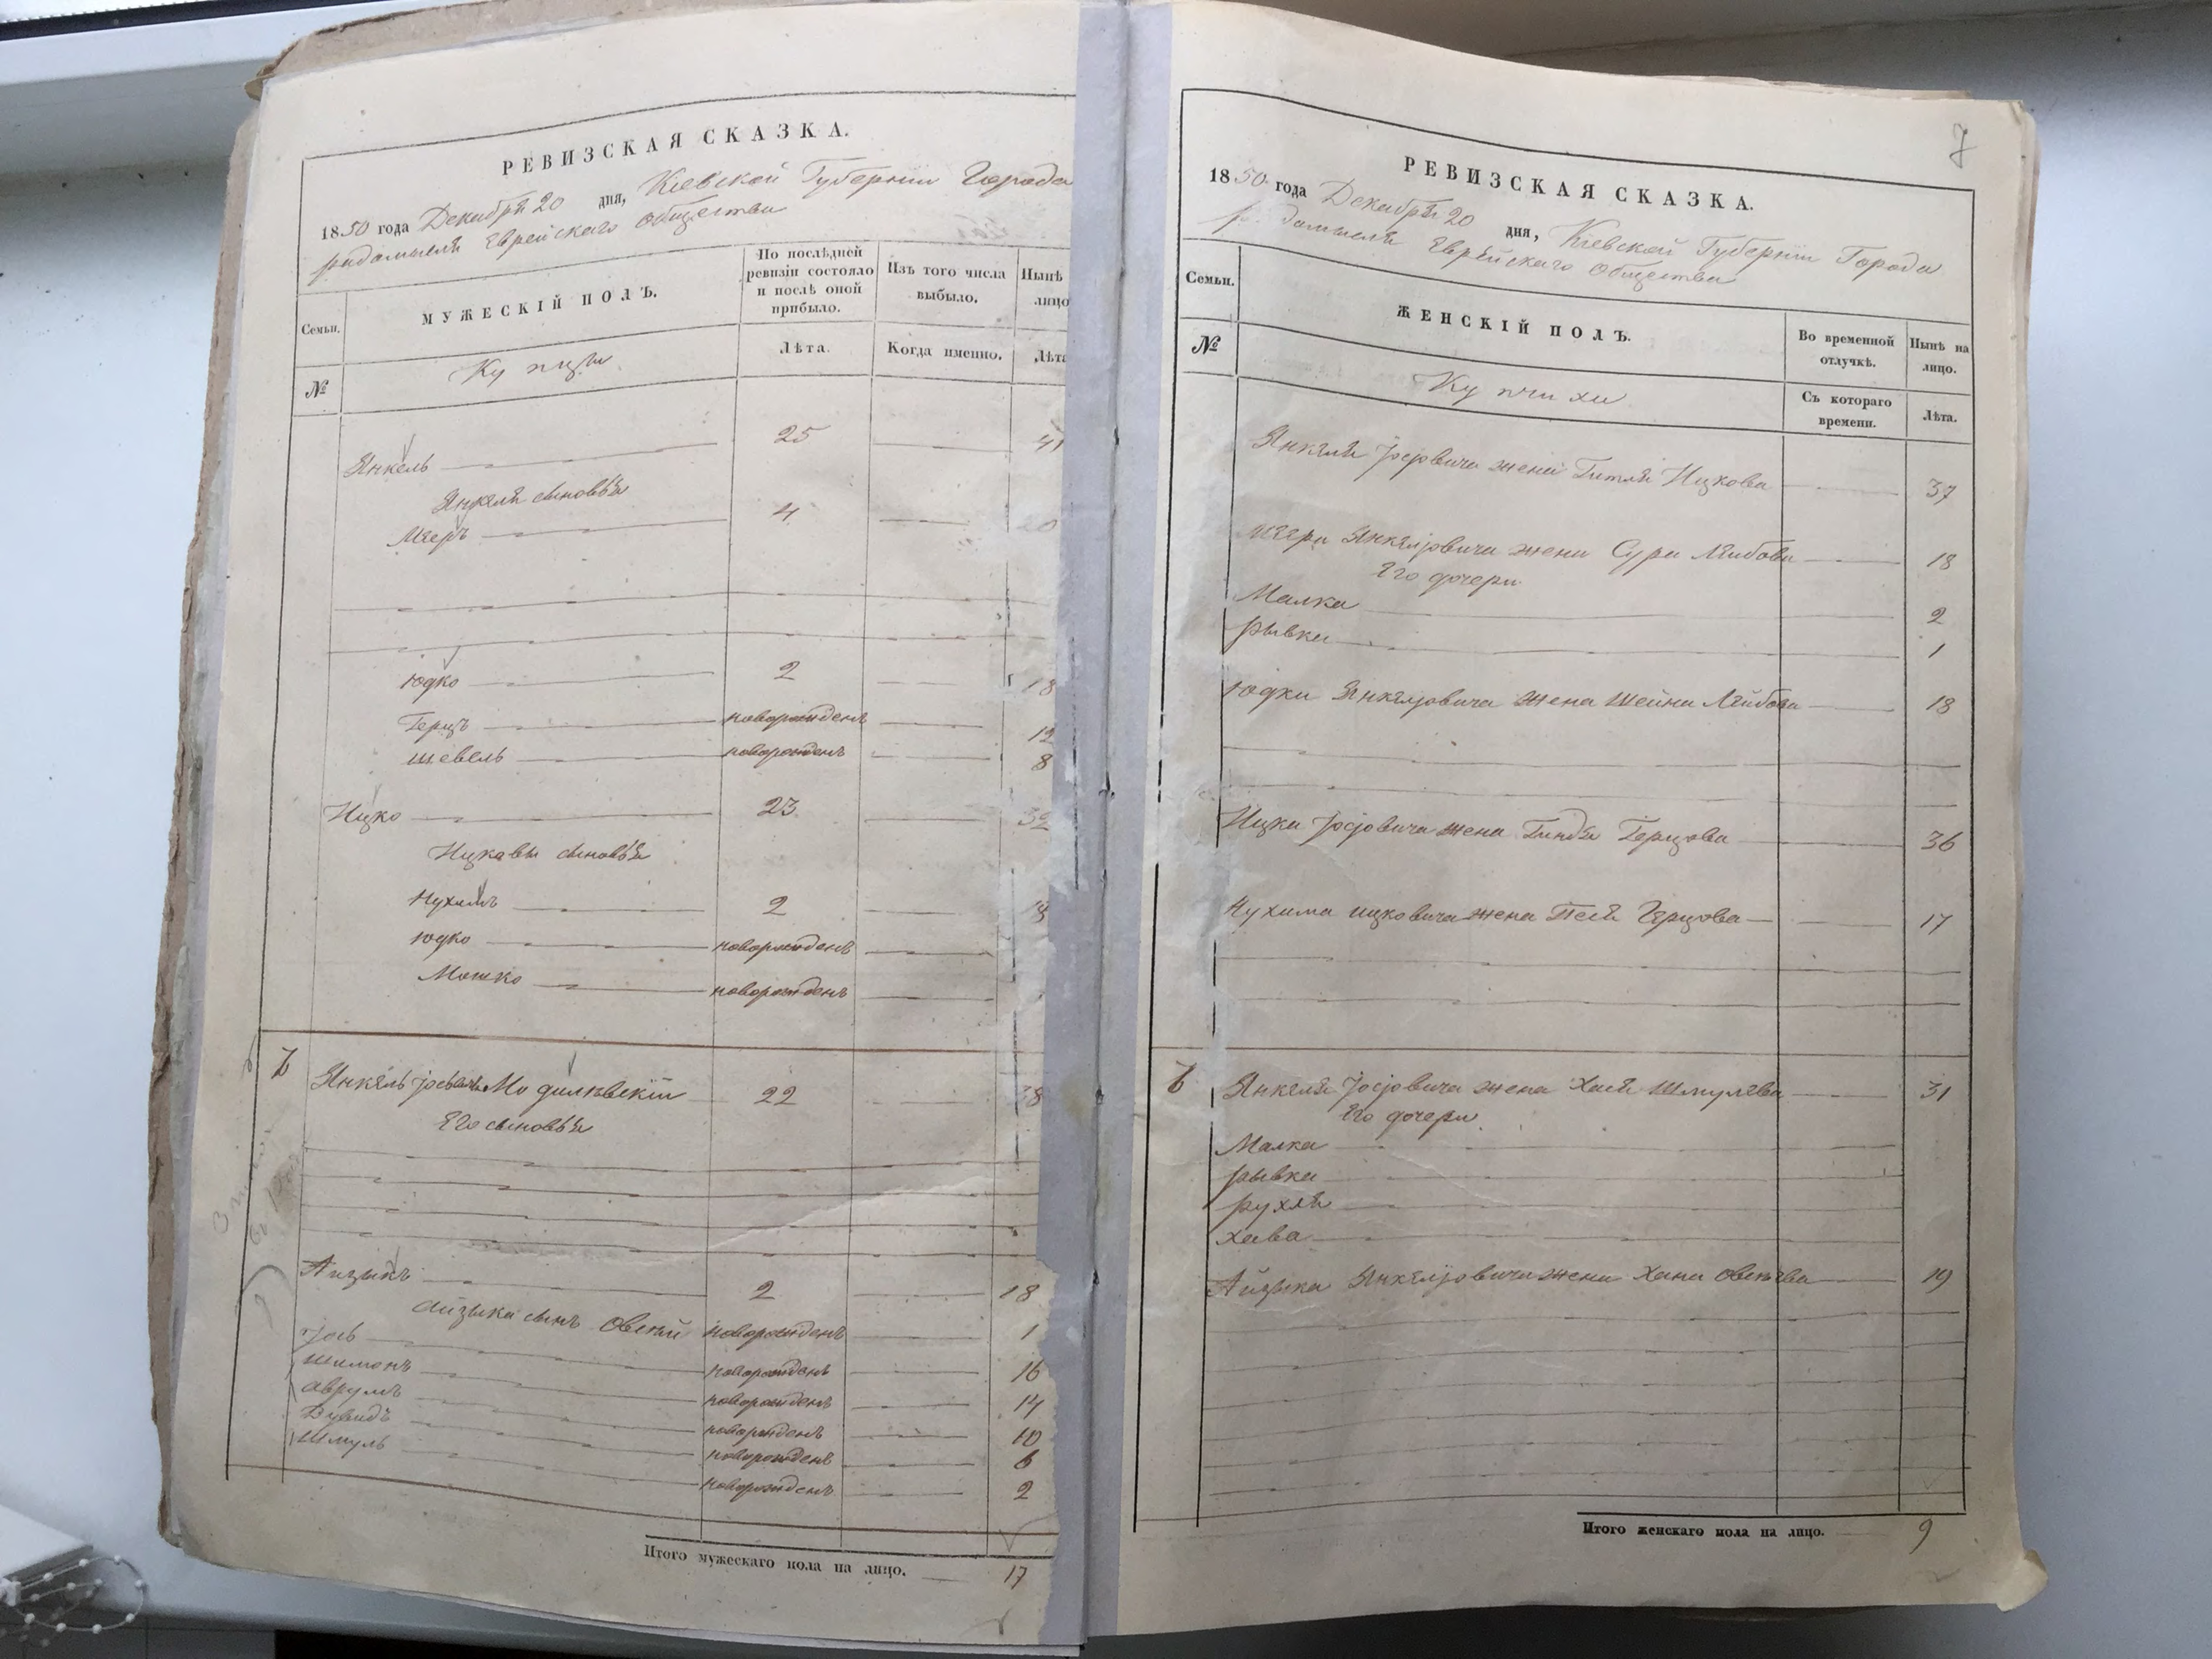 РЕВИЗСКАЯ СКАЗКА.
1850 года Декабря 20 дня, Кіевской Губерніи Города
Радомысля Еврейскаго Общества
Семьи.
МУЖЕСКІЙ ПОЛЪ.
По послѣдней ревизіи состояло и послѣ оной прибыло.
Изъ того числа выбыло.
Нынѣ лицо
№
Купцы
Лѣта.
Когда именно.
Лѣта
Янкель 25 41
Янкеля сыновья
Мееръ 4 20
Юдко 2 18
Герцъ новорожденъ 12
Шевель новорожденъ 8
Ицко 23 32
Ицкавы сыновья
Нухимъ 2 18
Юдко новорожденъ
Мошко новорожденъ
Янкель Іосьевъ 22 38
Его сыновья
Айзыкъ 2 18
Айзыка сынъ Овсей новорожденъ 1
Іось новорожденъ 16
Шимонъ новорожденъ 14
Аврумъ новорожденъ 10
Дувидъ новорожденъ 6
Шмуль новорожденъ 2
Итого мужескаго пола на лицо. 17
7
РЕВИЗСКАЯ СКАЗКА.
1850 года Декабря 20 дня, Кіевской Губерніи Города
Радомысля Еврейскаго Общества
Семьи.
ЖЕНСКІЙ ПОЛЪ.
Во временной отлучкѣ.
Нынѣ на лицо.
№
Купчихи
Съ котораго времени.
Лѣта.
Янкеля Іосіовича жена Гитля Ицкова 37
Меера Янкеліовича жена Сура Лейбова 18
Его дочери
Малка 2
Рывка 1
Юдки Янкеліовича жена Шейна Лейбова 18
Ицка Іосіовича жена Гиндя Герцова 36
Нухима Ицковича жена Песя Герцова 17
Янкеля Іосіовича жена Хася Шмулева 31
Его дочери
Малка
Рывка
Рухля
Хава
Айзыка Янкеліовича жена Хана Овсеева 19
Итого женскаго пола на лицо. 9